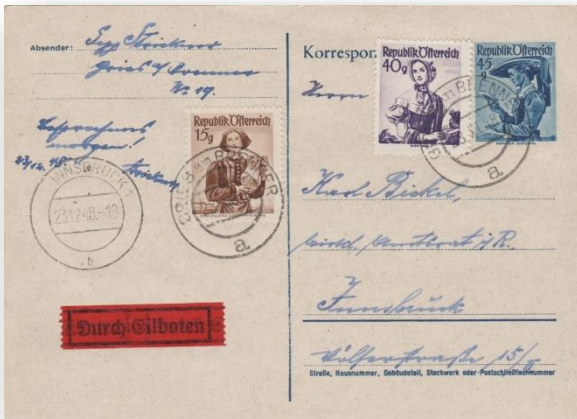 Absender: Sepp Strickner
Gries a/Brenner
Nr 19.
morgen!
23/12. 48. Strickner
INNSBRUCK 1
23.12.48.-18
b
Durch Eilboten
Republik Österreich
15g
GRIES am BRENNER
a
Korrespon
Republik Österreich
40g
Republik Österreich
45
g
a
Herrn
Karl Bickel,
i/R.
Innsbruck
15/
Straße, Hausnummer, Gebäudeteil, Stockwerk oder Postschließfachnummer